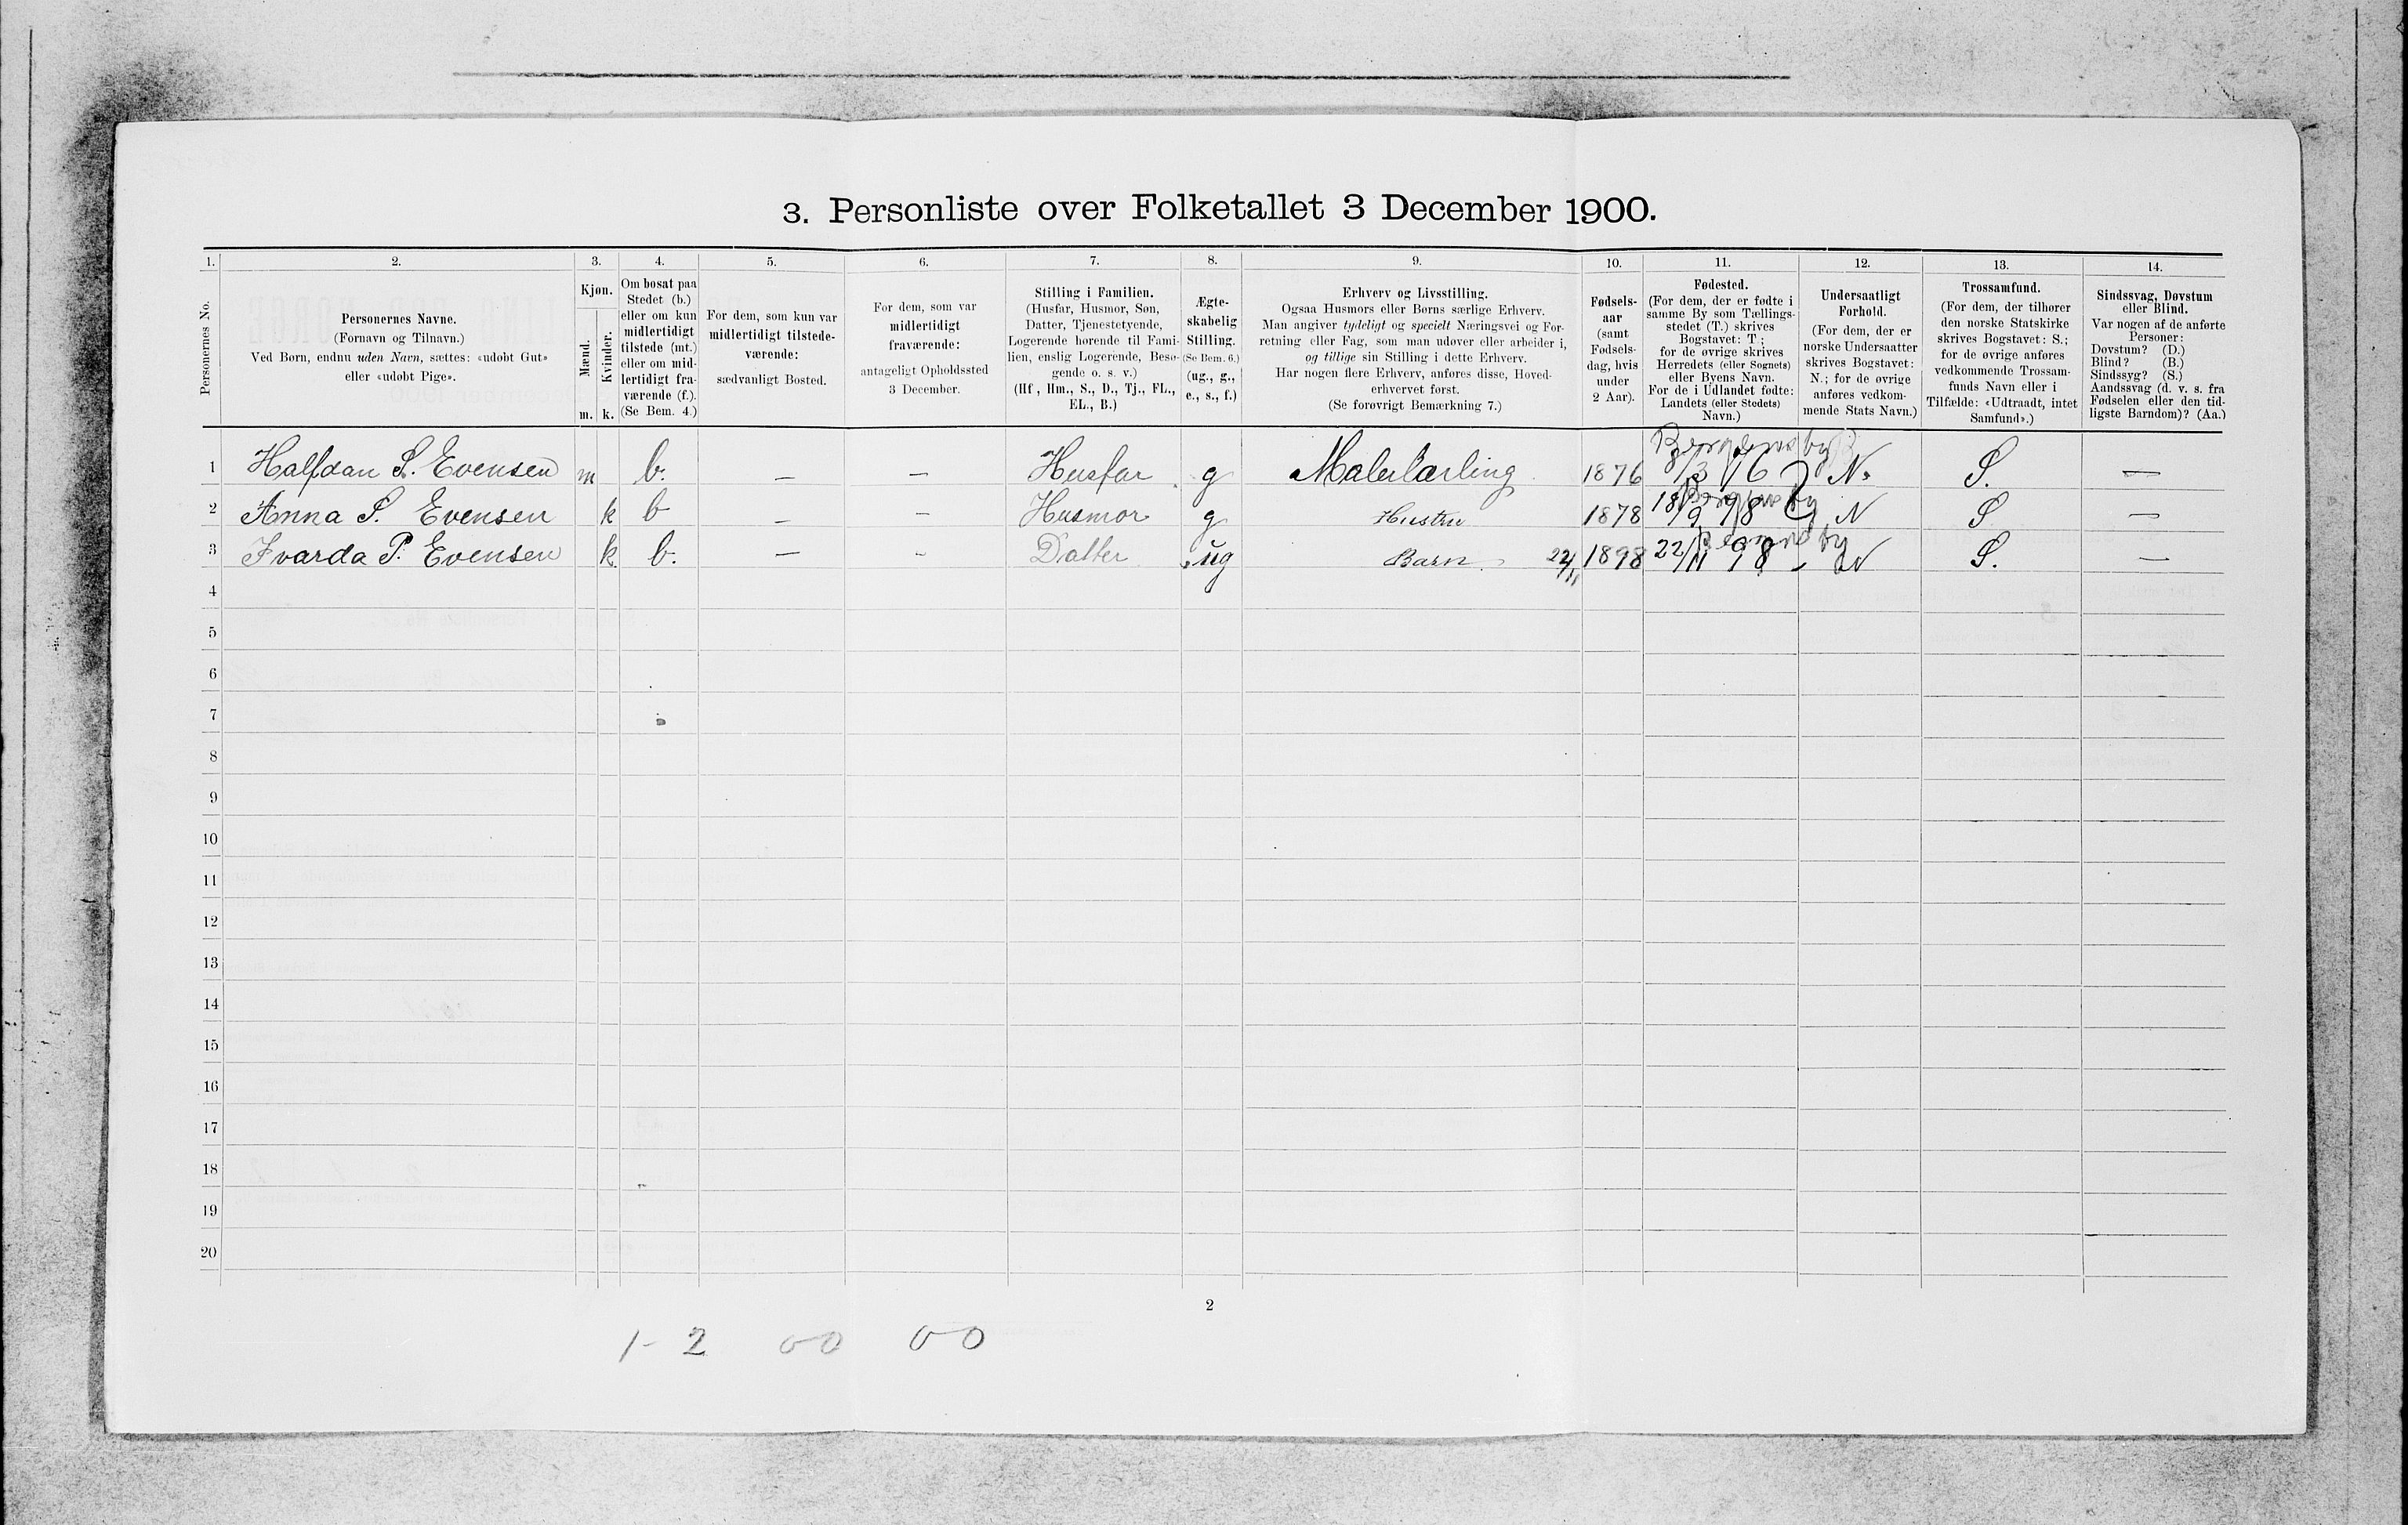 3. Personliste over Folketallet 3 December 1900.
1. 2. 3. 4. 5. 6. 7. 8. 9. 10. 11. 12. 13. 14.
Personernes No.
Personernes Navne.
(Fornavn og Tilnavn.)
Ved Børn, endnu uden Navn, sættes: «udøbt Gut»
eller «udøbt Pige».
Kjøn.
Mænd.
Kvinder.
m. k.
Om bosat paa
Stedet (b.)
eller om kun
midlertidigt
tilstede (mt.)
eller om mid-
lertidigt fra-
værende (f.).
(Se Bem. 4.)
For dem, som kun var
midlertidigt tilstede-
værende:
sædvanligt Bosted.
For dem, som var
midlertidigt
fraværende:
antageligt Opholdssted
3 December.
Stilling i Familien.
(Husfar, Husmor, Søn,
Datter, Tjenestetyende,
Logerende hørende til Fami-
lien, enslig Logerende, Besø-
gende o. s. v.)
(Hf., Hm., S., D., Tj., FL.,
EL., B.)
Ægte-
skabelig
Stilling.
(Se Bem. 6.)
(ug., g.,
e., s., f.)
Erhverv og Livsstilling.
Ogsaa Husmors eller Børns særlige Erhverv.
Man angiver tydeligt og specielt Næringsvei og For-
retning eller Fag, som man udøver eller arbeider i,
og tillige sin Stilling i dette Erhverv.
Har nogen flere Erhverv, anføres disse, Hoved-
erhvervet først.
(Se forøvrigt Bemærkning 7.)
Fødsels-
aar
(samt
Fødsels-
dag, hvis
under
2 Aar).
Fødested.
(For dem, der er fødte i
samme By som Tællings-
stedet (T.) skrives
Bogstavet: T;
for de øvrige skrives
Herredets (eller Sognets)
eller Byens Navn.
For de i Udlandet fødte:
Landets (eller Stedets)
Navn.)
Undersaatligt
Forhold.
(For dem, der er
norske Undersaatter
skrives Bogstavet:
N.; for de øvrige
anføres vedkom-
mende Stats Navn.)
Trossamfund.
(For dem, der tilhører
den norske Statskirke
skrives Bogstavet: S.;
for de øvrige anføres
vedkommende Trossam-
funds Navn eller i
Tilfælde: «Udtraadt, intet
Samfund».)
Sindssvag, Døvstum
eller Blind.
Var nogen af de anførte
Personer:
Døvstum? (D.)
Blind? (B.)
Sindssyg? (S.)
Aandssvag (d. v. s. fra
Fødselen eller den tid-
ligste Barndom)? (Aa.)
1 Halfdan S. Evensen m b. — — Husfar g Malerlærling 1876 8/3 76 N. S. —
2 Anna S. Evensen k b — — Husmor g Hustru 1878 18/9 78 N S —
3 Evensen k. b. — - Datter ug Barn. 1898 22/11 98 - N S. —
4
5
6
7
8
9
10
11
12
13
14
15
16
17
18
19
20
2
1-2 00 00